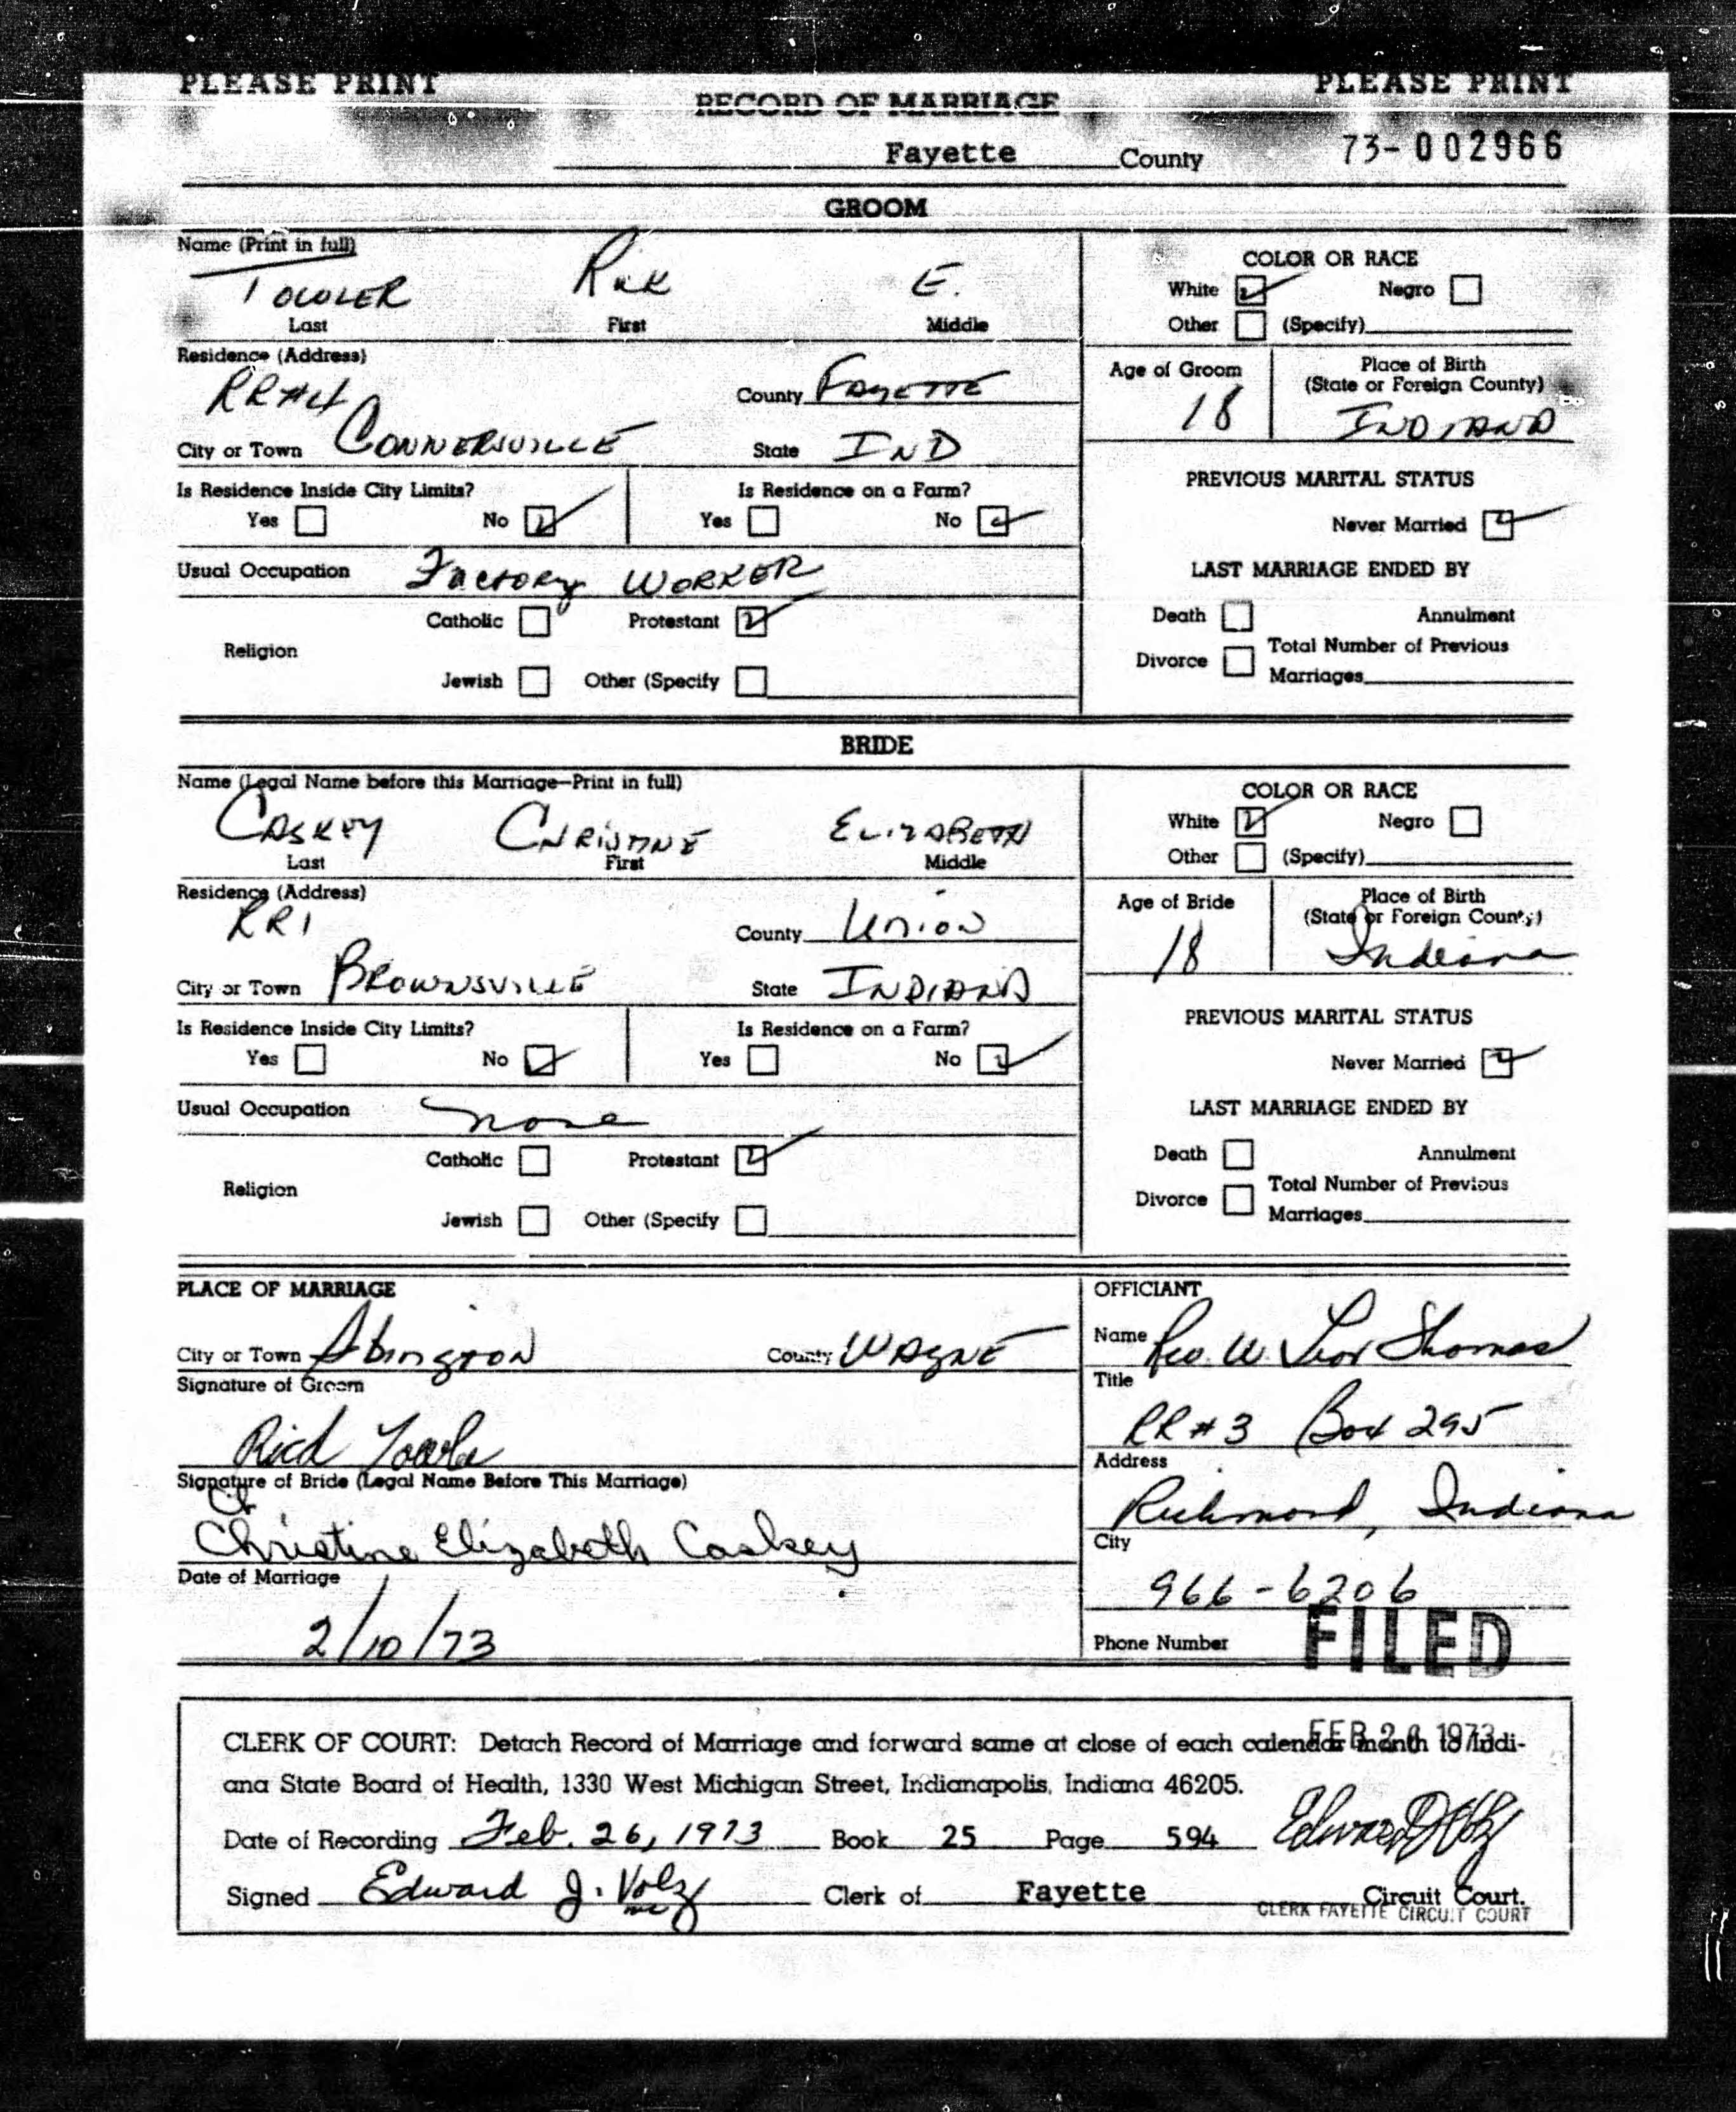 PLEASE PRINT PLEASE PRINT
RECORD OF MARRIAGE
Fayette County 73-002966
GROOM
Name (Print in full)
TOWLER Rick E.
Last First Middle
COLOR OR RACE
White Negro
Other (Specify)
Residence (Address)
RR#4 County FAYETTE
City or Town CONNERSVILLE State IND
Age of Groom Place of Birth
(State or Foreign County)
18 INDIANA
Is Residence Inside City Limits? Is Residence on a Farm?
Yes No Yes No
PREVIOUS MARITAL STATUS
Never Married
Usual Occupation FACTORY WORKER
LAST MARRIAGE ENDED BY
Catholic Protestant
Religion
Jewish Other (Specify
Death Annulment
Total Number of Previous
Divorce
Marriages
BRIDE
Name (Legal Name before this Marriage—Print in full)
CASKEY CHRISTINE ELIZABETH
Last First Middle
COLOR OR RACE
White Negro
Other (Specify)
Residence (Address)
RR1 County UNION
City or Town BROWNSVILLE State INDIANA
Age of Bride Place of Birth
(State or Foreign County)
18 Indiana
Is Residence Inside City Limits? Is Residence on a Farm?
Yes No Yes No
PREVIOUS MARITAL STATUS
Never Married
Usual Occupation none
LAST MARRIAGE ENDED BY
Catholic Protestant
Religion
Jewish Other (Specify
Death Annulment
Total Number of Previous
Divorce
Marriages
PLACE OF MARRIAGE
City or Town Abington County WAYNE
Signature of Groom
Rick Towler
Signature of Bride (Legal Name Before This Marriage)
Christine Elizabeth Caskey
Date of Marriage
2/10/73
OFFICIANT
Name Rev. W. Thomas
Title
RR #3 Box 295
Address
Richmond, Indiana
City
966-6206
Phone Number
FILED
CLERK OF COURT: Detach Record of Marriage and forward same at close of each calendar month to Indi-
FEB 26 1973
ana State Board of Health, 1330 West Michigan Street, Indianapolis, Indiana 46205.
Date of Recording Feb. 26, 1973 Book 25 Page 594 Edward J Volz
Signed Edward J. Volz Clerk of Fayette Circuit Court.
CLERK FAYETTE CIRCUIT COURT